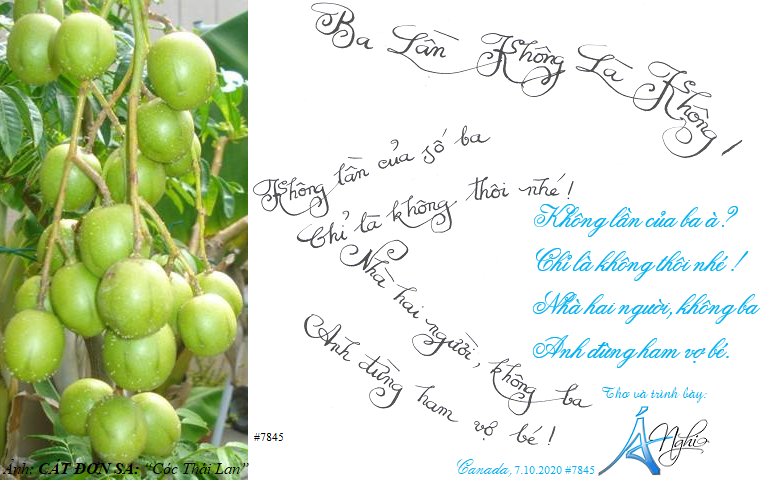 Ba Lần Không Là Không!
Không lần của số ba
Chỉ là không thôi nhé!
Nhà hai người, không ba
Anh đừng ham vợ bé!
Không lần của ba à?
Chỉ là không thôi nhé!
Nhà hai người, không ba
Anh đừng ham vợ bé.
Thơ và trình bày:
Á Nghi
#7845
Ảnh: CÁT ĐƠN SA: “Cóc Thái Lan”
Canada, 7.10.2020 #7845